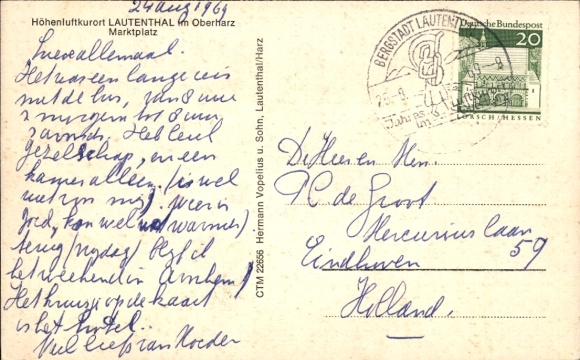 24 aug 1969
Höhenluftkurort LAUTENTHAL im Oberharz
Marktplatz
Lieve allemaal.
Het was een lange reis
met de bus, van 8 uur
's morgens tot 8 uur
's avonds. Heb leuk
gezelschap, en een
kamer alleen (is wel
met zon mij). Weer is
goed, kon wel warmer.
terug (vrijdag) blijf ik
het weekend in Arnhem
Het kruisje op de kaart
is het hotel.
Veel liefs van Moeder
CTM 22656 Hermann Vopelius u. Sohn, Lautenthal/Harz
BERGSTADT LAUTENTHAL
Deutsche Bundespost
20
LORSCH/HESSEN
De Heer en Mevr.
P.C. de Groot
Mercuriuslaan
59
Eindhoven
Holland.